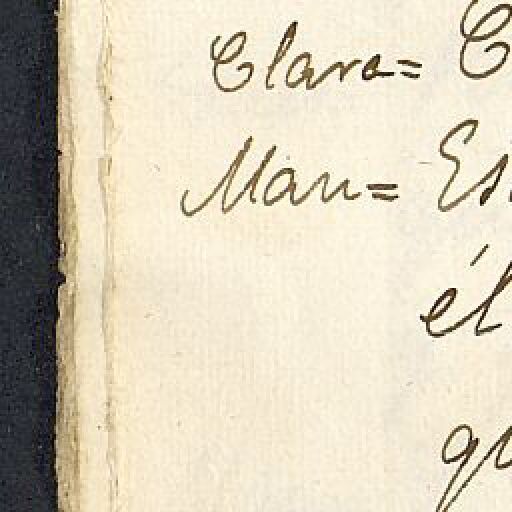 Clara= C
Man= Es
él
qu